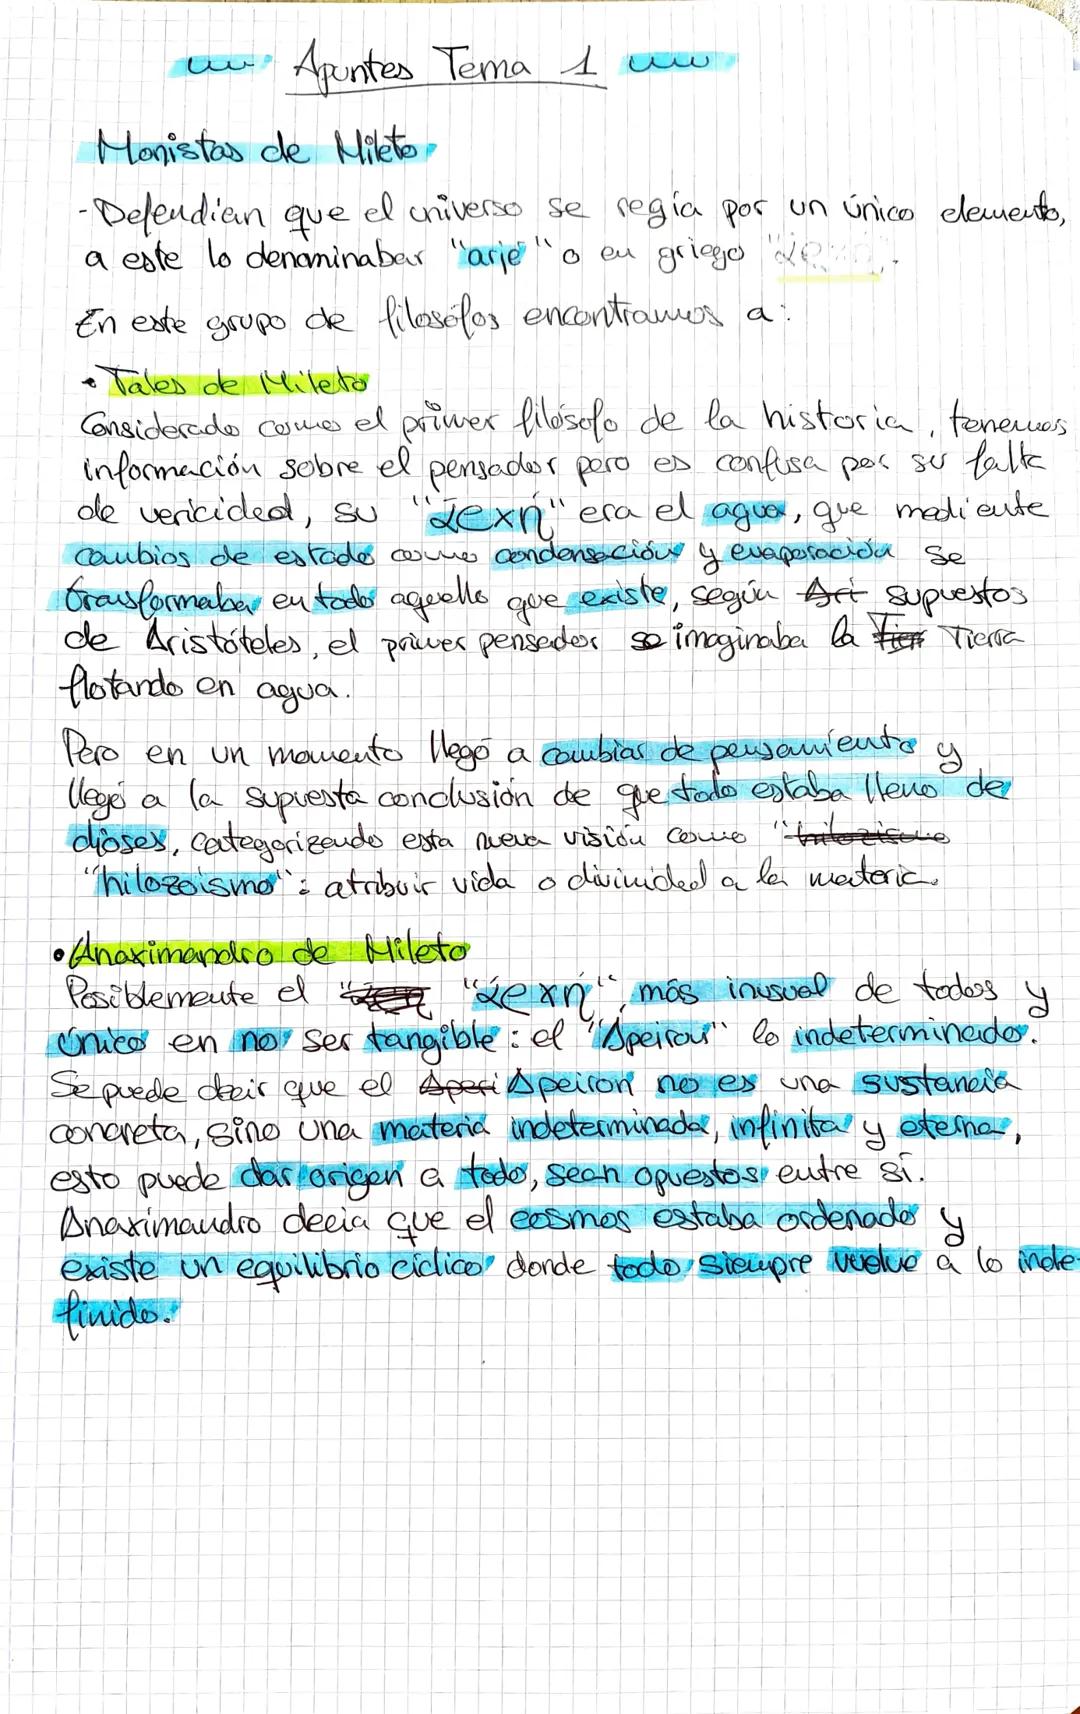 Apuntes Tema 1
Monistas de Mileto
- Defendían que el universo se regía por un único elemento,
a este lo denominaban "arjé" o en griego
En este grupo de filosófos encontramos a:
• Tales de Mileto
Considerado como el primer filósofo de la historia, tenemos
información sobre el pensador pero es confusa por su falta
de vericidad, su "άρχη" era el agua, que mediante
cambios de estado como condensación y evaporación se
transformaba en todo aquello que existe, según Ari supuestos
de Aristóteles, el primer pensador se imaginaba la Tier Tierra
flotando en agua.
Pero en un momento llegó a cambiar de pensamiento y
llegó a la supuesta conclusión de que todo estaba lleno de
dioses, categorizando esta nueva visión como "hilozoismo
"hilozoismo": atribuir vida o divinidad a la materia.
• Anaximandro de Mileto
Posiblemente el "άρχή", más inusual de todos y
único en no ser tangible: el "Apeiron" lo indeterminado.
Se puede decir que el Aperi Apeiron no es una sustancia
concreta, sino una materia indeterminada, infinita y eterna,
esto puede dar origen a todo, sean opuestos entre sí.
Anaximandro decía que el cosmos estaba ordenado y
existe un equilibrio cíclico donde todo siempre vuelve a lo inde-
finido.